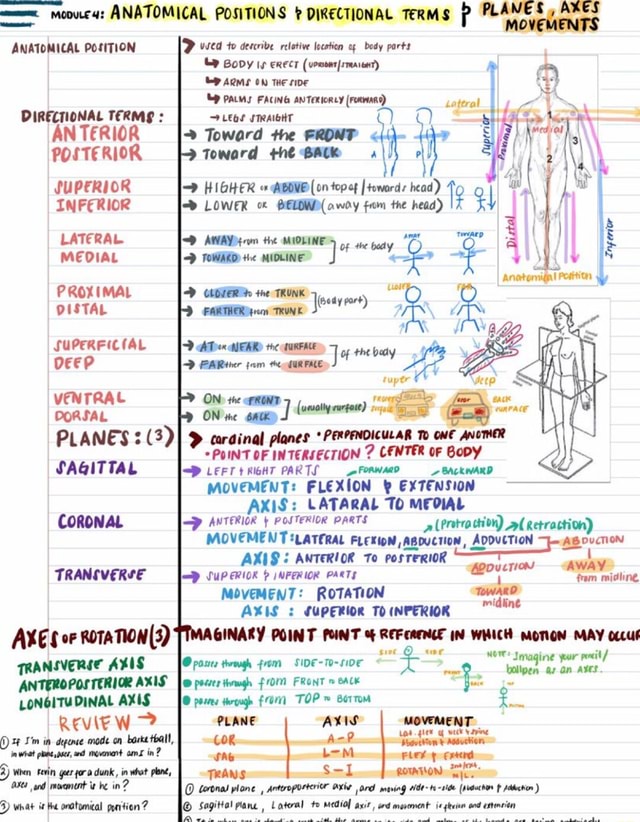 MODULE 4: ANATOMICAL POSITIONS & DIRECTIONAL TERMS & PLANES, AXES MOVEMENTS
ANATOMICAL POSITION
used to describe relative location of body parts
BODY IS ERECT (UPRIGHT/STRAIGHT)
ARMS ON THE SIDE
PALMS FACING ANTERIORLY (FORWARD)
LEGS STRAIGHT
DIRECTIONAL TERMS:
ANTERIOR → Toward the FRONT
POSTERIOR → Toward the BACK
A P
SUPERIOR → HIGHER OR ABOVE (on top of / towards head)
INFERIOR → LOWER OR BELOW (away from the head)
LATERAL → AWAY from the MIDLINE
MEDIAL → TOWARD the MIDLINE
of the body
AWAY TOWARD
PROXIMAL → CLOSER to the TRUNK
DISTAL → FARTHER from TRUNK
(Body part)
CLOSER FAR
SUPERFICIAL → AT OR NEAR the SURFACE
DEEP → FARther from the SURFACE
of the body
super deep
VENTRAL → ON the FRONT
DORSAL → ON the BACK
(usually surface)
FRONT SURFACE
BACK SURFACE
Lateral
Superior
Proximal
Medial
1
2
3
4
Distal
Inferior
Anatomical Position
PLANES: (3)
cardinal planes • PERPENDICULAR TO ONE ANOTHER
• POINT OF INTERSECTION? CENTER OF BODY
SAGITTAL → LEFT & RIGHT PARTS FORWARD BACKWARD
MOVEMENT: FLEXION & EXTENSION
AXIS: LATARAL TO MEDIAL
CORONAL → ANTERIOR & POSTERIOR PARTS (Protraction) → (Retraction)
MOVEMENT: LATERAL FLEXION, ABDUCTION, ADDUCTION
AXIS: ANTERIOR TO POSTERIOR
ABDUCTION
AWAY
from midline
ADDUCTION
TOWARD
midline
TRANSVERSE → SUPERIOR & INFERIOR PARTS
MOVEMENT: ROTATION
AXIS: SUPERIOR TO INFERIOR
AXES OF ROTATION (3) - IMAGINARY POINT POINT OF REFERENCE IN WHICH MOTION MAY OCCUR
TRANSVERSE AXIS • passes through from SIDE-TO-SIDE
ANTEROPOSTERIOR AXIS • passes through from FRONT to BACK
LONGITUDINAL AXIS • passes through from TOP to BOTTOM
SIDE SIDE
FRONT
BACK
NOTE: Imagine your pencil/
ballpen as an AXES.
REVIEW →
PLANE AXIS MOVEMENT
COR A-P Lat. flex of neck & spine Abduction & Adduction
SAG L-M FLEX & Extend
TRANS S-I ROTATION
① If I'm in defense mode on basketball,
in what plane, axes, and movement am I in?
② When Kevin goes for a dunk, in what plane,
axes, and movement is he in?
③ What is the anatomical position?
① Coronal plane, Anteroposterior axis, and moving side-to-side (Abduction & Adduction)
② Sagittal plane, Lateral to Medial axis, and movement is flexion and extension